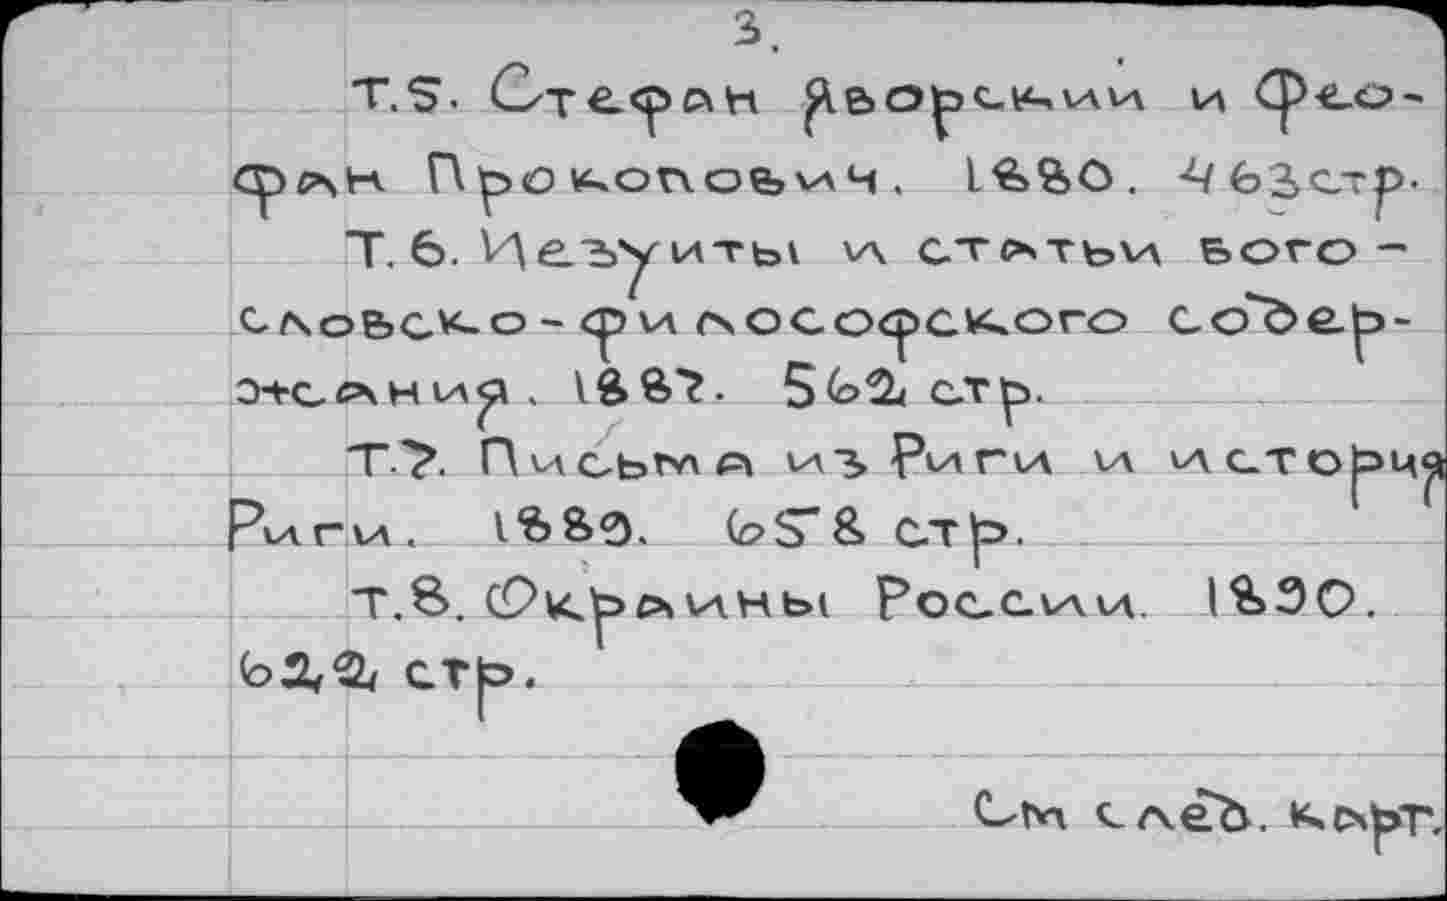 3.
Т.5. Стефан Яворскии и Фео-
фан Прокопович. 1880. 463 стр.
Т.6. Иезуиты и статьи бого-
словско-философского содер-
жания. 1887. 562 стр.
Т.7. Письма изъ Риги и история
Риги. 1889. 658 стр.
Т.8. Окраины России. 1890.
622 стр.
См след. карт.